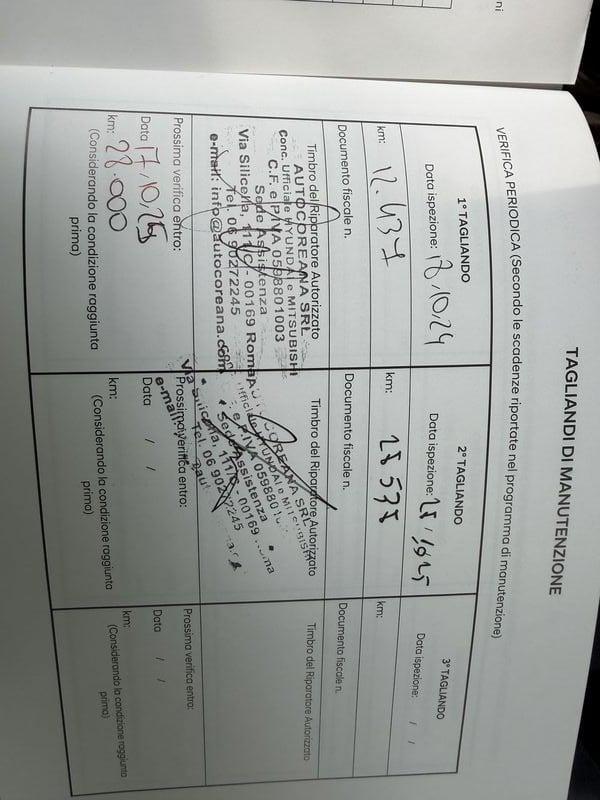 ni
TAGLIANDI DI MANUTENZIONE
VERIFICA PERIODICA (Secondo le scadenze riportate nel programma di manutenzione)
1° TAGLIANDO
Data ispezione: 17/10/24
km: 12.437
Documento fiscale n.
Timbro del Riparatore Autorizzato
AUTOCOREANA SRL
Conc. Ufficiale HYUNDAI e MITSUBISHI
C.F. e P.IVA 0598801003
Sede Assistenza
Via Silicella, 111/C - 00169 Roma
Tel. 06 90272245
e-mail: info@autocoreana.com
Prossima verifica entro:
Data 17/10/25
km: 28.000
(Considerando la condizione raggiunta
prima)
2° TAGLIANDO
Data ispezione:
km: 28 575
Documento fiscale n.
Timbro del Riparatore Autorizzato
COREANA SRL
HYUNDAI e
e P.IVA 0598801
Sede Assistenza
Via Silicella, 111/C - 00169
Tel. 06 90272245
e-mail:
Prossima verifica entro:
Data / /
km:
(Considerando la condizione raggiunta
prima)
3° TAGLIANDO
Data ispezione: / /
km:
Documento fiscale n.
Timbro del Riparatore Autorizzato
Prossima verifica entro:
Data / /
km:
(Considerando la condizione raggiunta
prima)